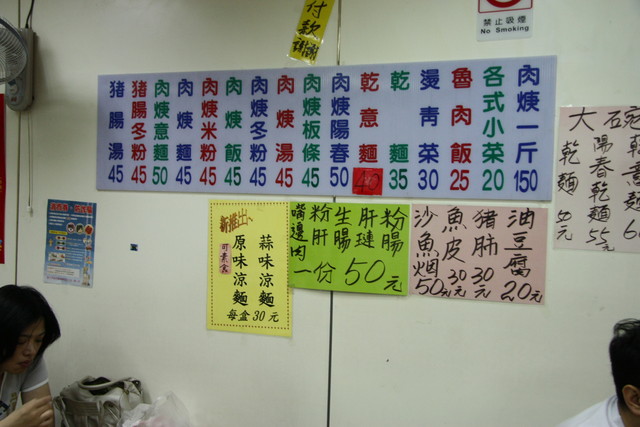 付款
謝謝
禁止吸煙
No Smoking
肉焿一斤 150
各式小菜 20
魯肉飯 25
燙青菜 30
乾麵 35
乾意麵
肉焿陽春 50
肉焿板條 45
肉焿湯 45
肉焿冬粉 45
肉焿飯 45
肉焿米粉 45
肉焿麵 45
肉焿意麵 50
豬腸冬粉 45
豬腸湯 45
大碗
乾意麵
陽春乾麵 55元
乾麵 50元
油豆腐 20元
豬肺 30元
魚皮 30元
沙魚烟 50元
粉腸
肝璉
生腸
粉肝
嘴邊肉
一份50元
新推出
可素食
蒜味涼麵
原味涼麵
每盒30元